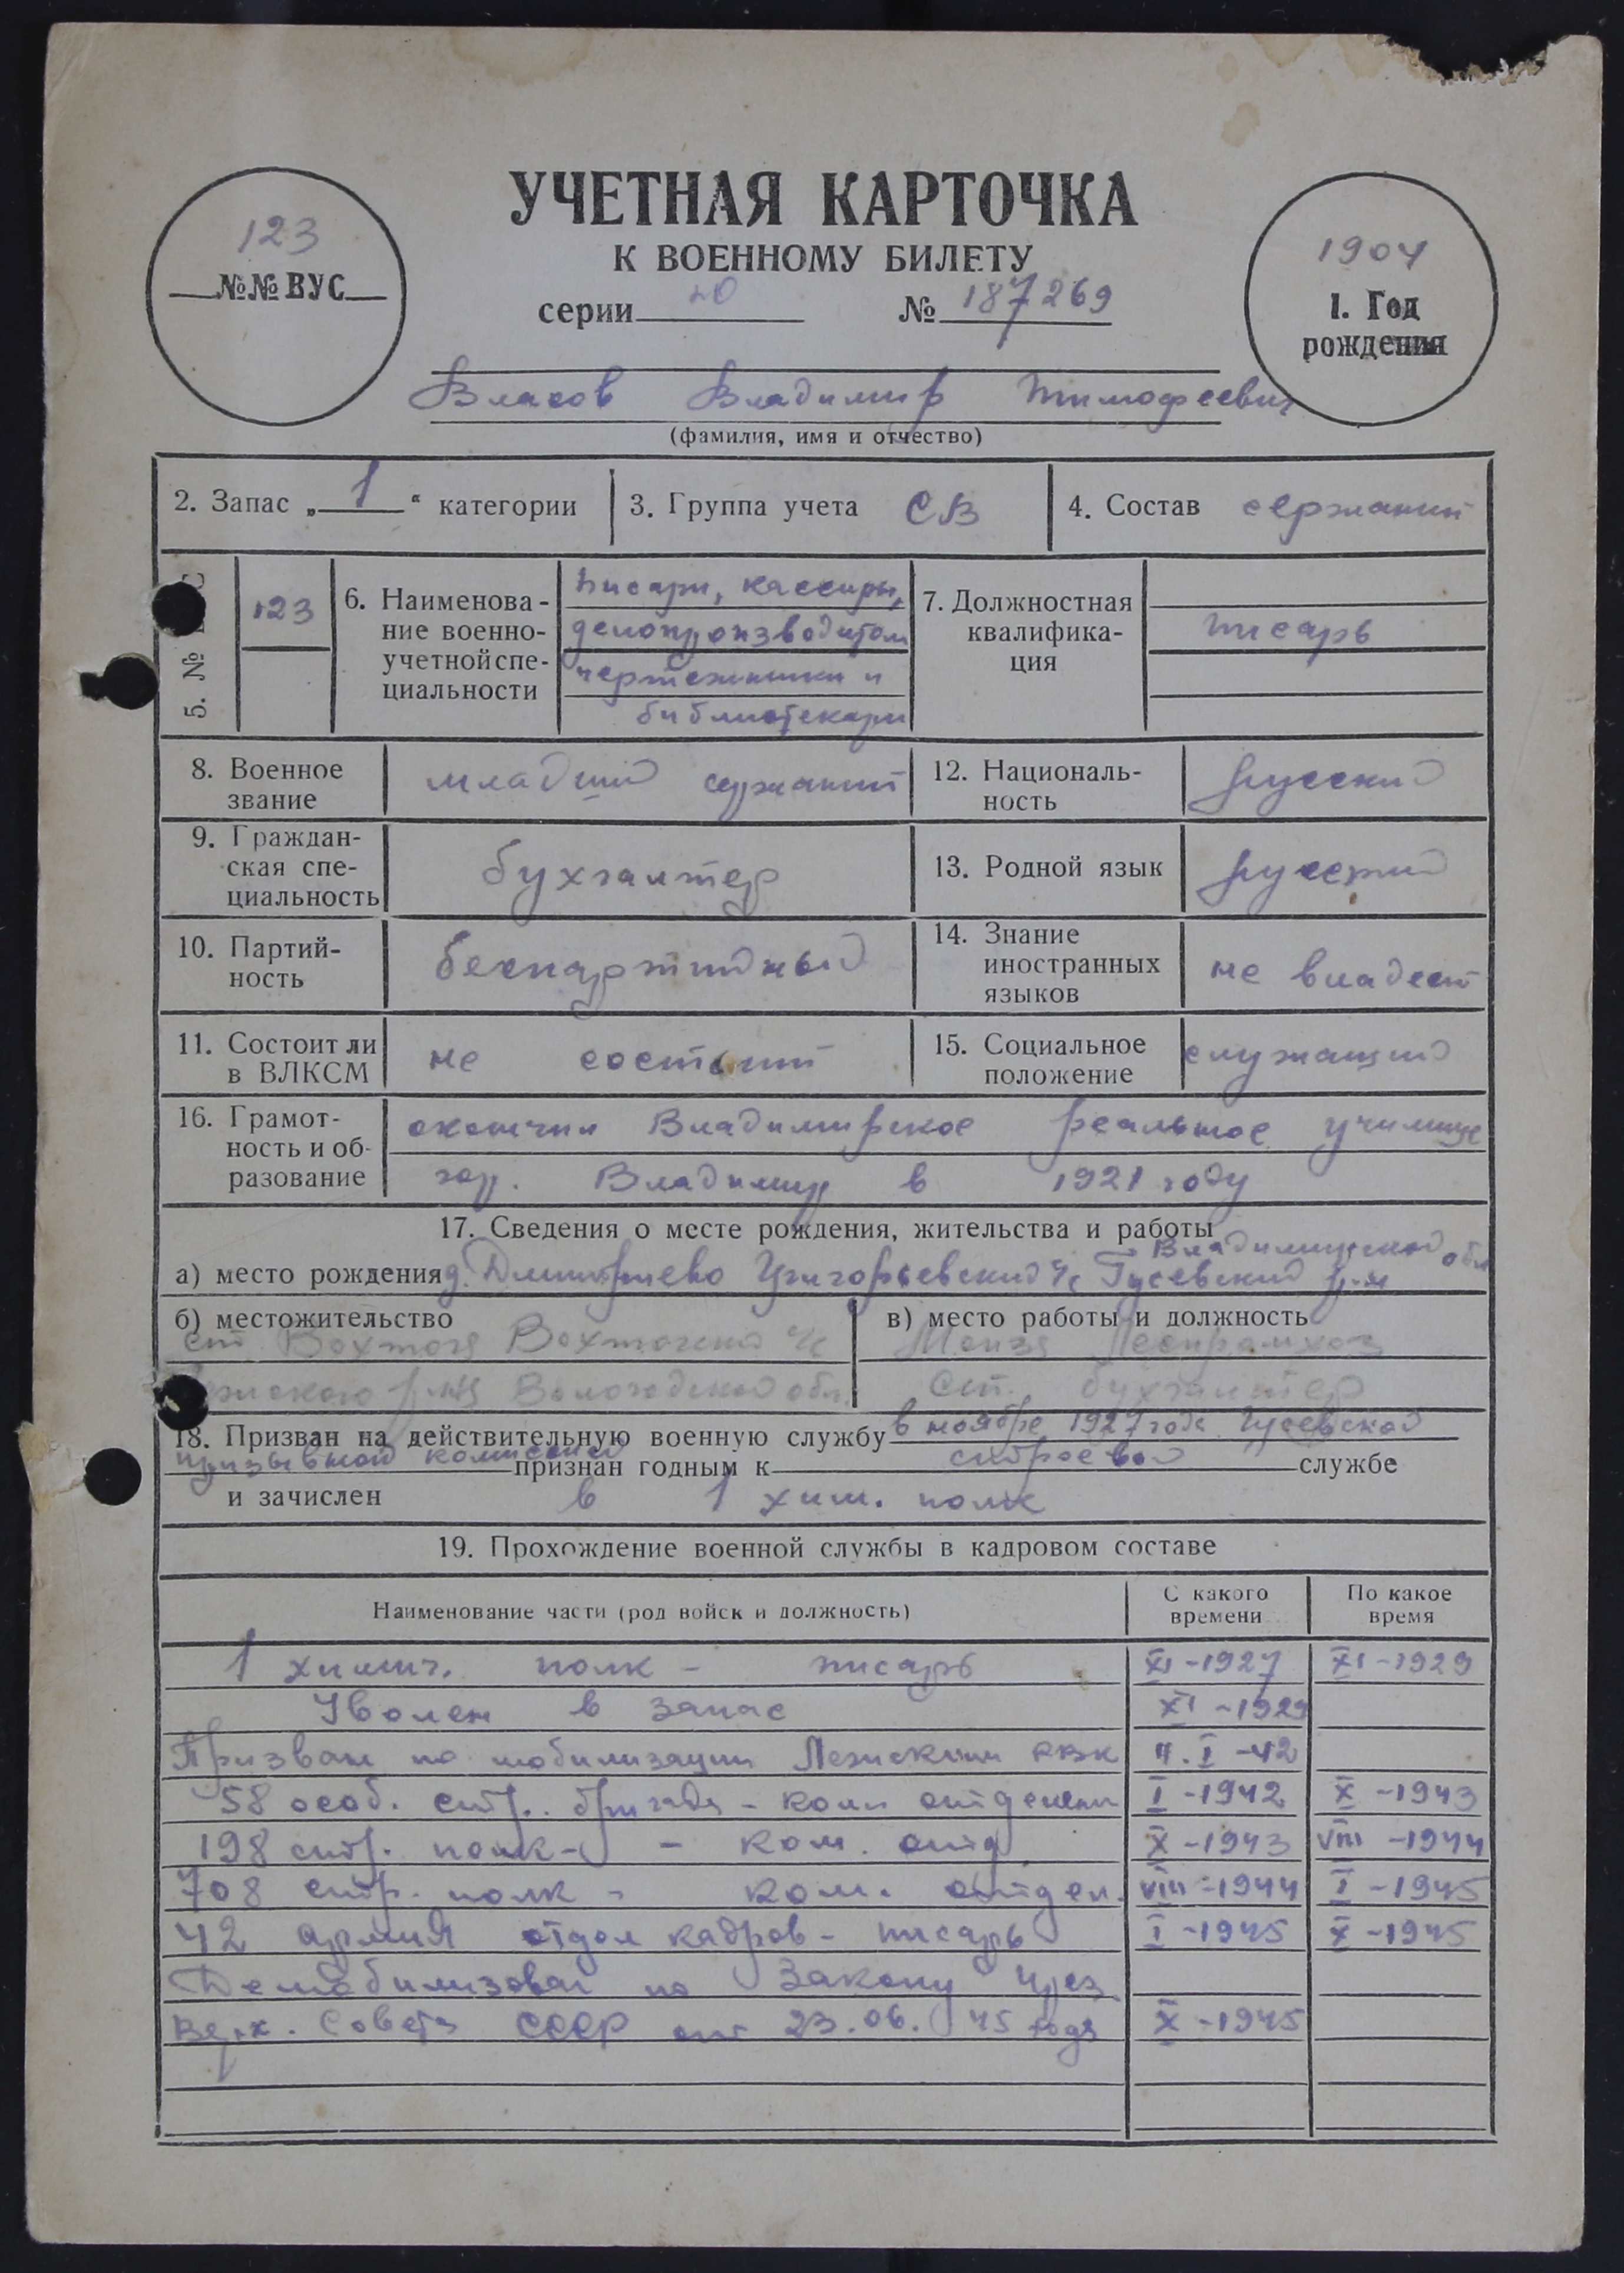 УЧЕТНАЯ КАРТОЧКА
К ВОЕННОМУ БИЛЕТУ
серии № 187269
123
№№ ВУС
1904
1. Год
рождения
Власов Владимир Тимофеевич
(фамилия, имя и отчество)
2. Запас „1“ категории
3. Группа учета СВ
4. Состав сержант
5. №
123
6. Наименова-
ние военно-
учетной спе-
циальности
писаря, кассиры,
делопроизводители
чертежники и
библиотекари
7. Должностная
квалифика-
ция
писарь
8. Военное
звание
младший сержант
12. Националь-
ность
русский
9. Граждан-
ская спе-
циальность
бухгалтер
13. Родной язык
русский
10. Партий-
ность
беспартийный
14. Знание
иностранных
языков
не владеет
11. Состоит ли
в ВЛКСМ
не состоит
15. Социальное
положение
служащий
16. Грамот-
ность и об-
разование
окончил Владимирское реальное училище
гор. Владимир в 1921 году
17. Сведения о месте рождения, жительства и работы
Владимирской обл
а) место рождения д. Дмитриево Григорьевский с/с Гусевский р-н
б) местожительство
ст Вохтога Вохтожский с/с
р-на Вологодской обл.
в) место работы и должность
Монза Леспромхоз
ст. бухгалтер
18. Призван на действительную военную службу в ноябре 1927 года Гусевской
призывной комиссией признан годным к строевой службе
и зачислен в 1 хим. полк
19. Прохождение военной службы в кадровом составе
Наименование части (род войск и должность)
С какого
времени
По какое
время
1 химич. полк - писарь XI-1927 XI-1929
Уволен в запас XI-1929
Призван по мобилизации Лежским РВК 4.I-42
58 особ. стр. бригада - ком отделен I-1942 X-1943
198 стр. полк - - ком. отд VIII-1944 X-1943
708 стр. полк - ком. отдел. VIII-1944 I-1945
42 армия отдел кадров - писарь I-1945 X-1945
Демобилизован по Закону През.
Верх. Совета СССР от 23.06.45 года X-1945